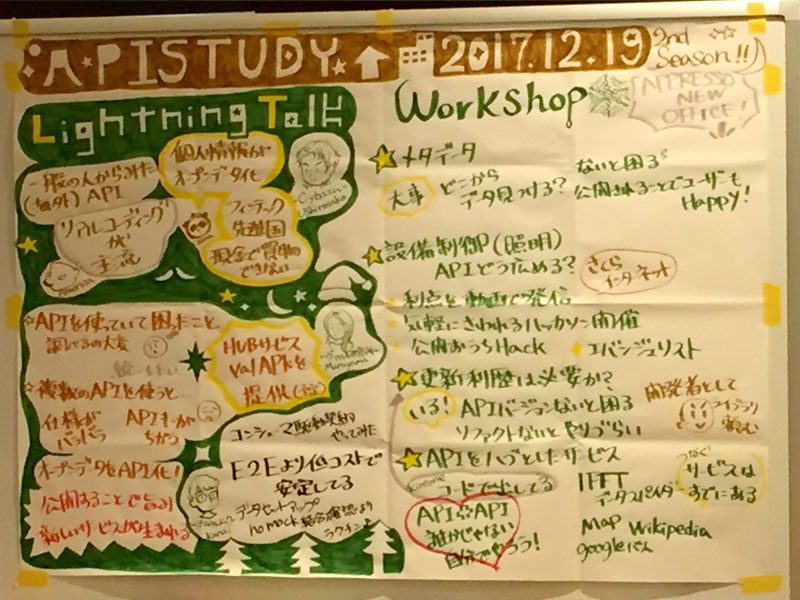 APISTUDY
2017.12.19
2nd
Season!!
APPRESSO
NEW
OFFICE!
Lightning Talk
一般の人からみた
API
個人情報が
オープンデータ化
リアルコーディング
が
主流
フィンテック
先進国
現金で買物
できない
APIを使っていて困ったこと
調べるの大変
複数のAPIを使うと…
仕様が
バラバラ
APIキーが
ちがう
オープンデータをAPI化!
公開することで
新しいサービスが生まれる
HUBサービス
Val APIを
提供
コンシューマ駆動契約
やってみた
E2Eより低コストで
安定してる
データセットアップ
no mock
Workshop
メタデータ
大事
どこから
データ見つける?
ないと困る
公開されることでユーザーも
Happy!
設備制御(照明)
APIどう広める?
さくら
インターネット
利点を動画で発信
気軽にさわれるハッカソン開催
公開おうちHack
エバンジェリスト
更新利歴は必要か?
いる!
APIバージョンないと困る
リファクトないとやりづらい
開発者として
ライブラリ
APIをハブとしたサービス
コードで出してる
API API
誰かじゃない
自分でやろう!
IFTT
データスパイダー
つなぐ
サービスは
すでにある
Map Wikipedia
google